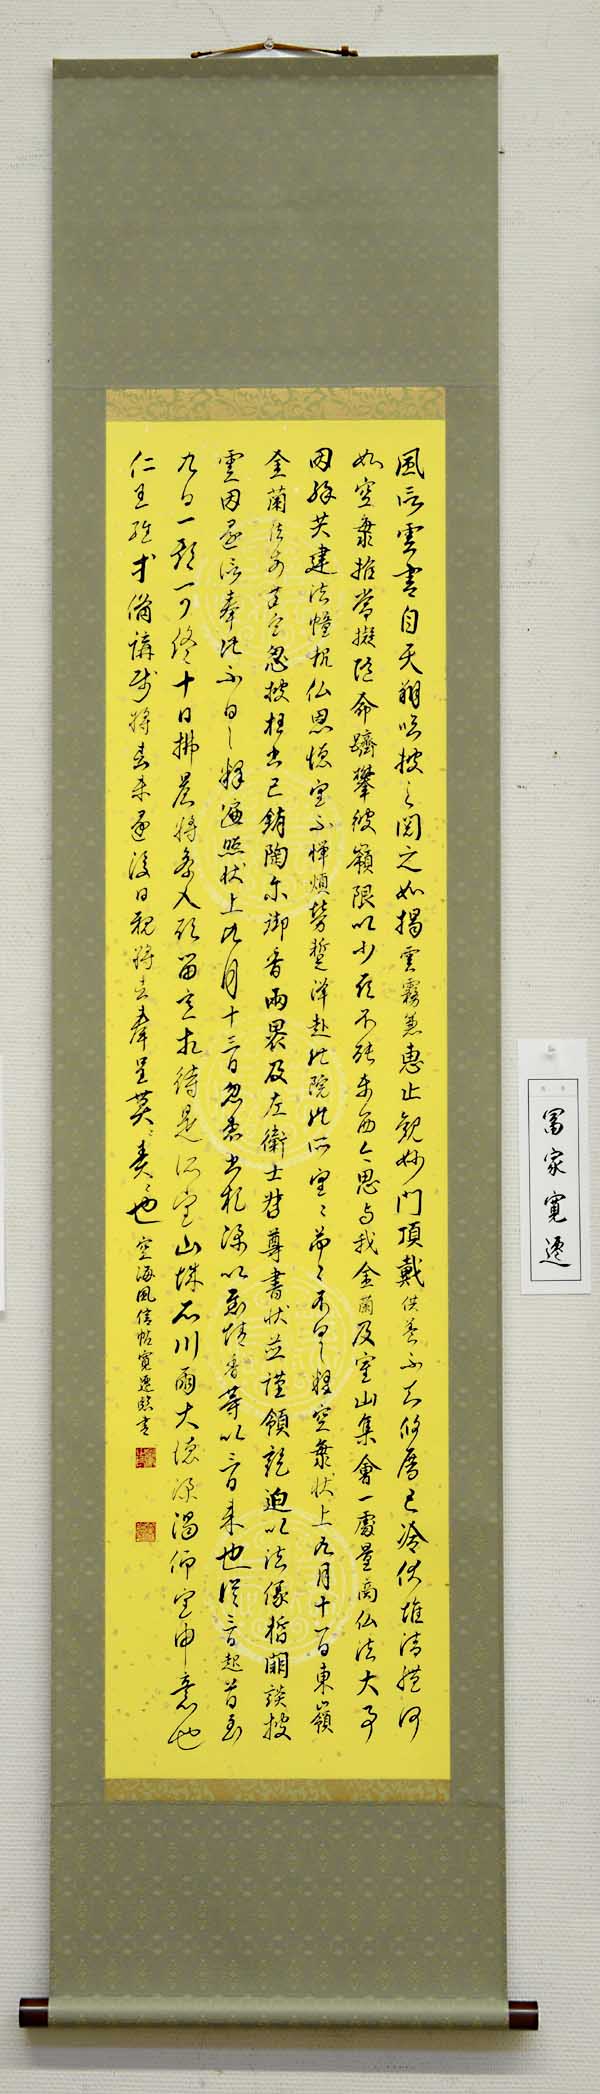 風信雲書自天翔臨披之閲之如揭雲霧兼惠止觀妙門頂戴供養不知攸厝已冷伏惟法體何
如空海推常擬隨命躋攀彼嶺限以少願不能東西今思与我金蘭及室山集會一處量商仏法大事
因縁共建法幢報仏恩徳望不憚煩勞蹔降赴此院此所望々々忩々不具釋空海状上九月十一日東嶺
金蘭法前謹空忽披枉書已銷陶尓御香兩裹及左衛士督尊書状並謹領訖迫以法縁暫闕談披
雲因還信奉此不具釋遍照状上九月十三日忽惠書札深以慰情香等以三日来也從三日起首至
九日一期可終十日拂晨将參入願留意相待是所望山城石川兩大徳深渇仰望申意也
仁王經等備講師将去未還後日親将去奉呈莫々責々也 空海風信帖寛遷臨書
冨家寛遷